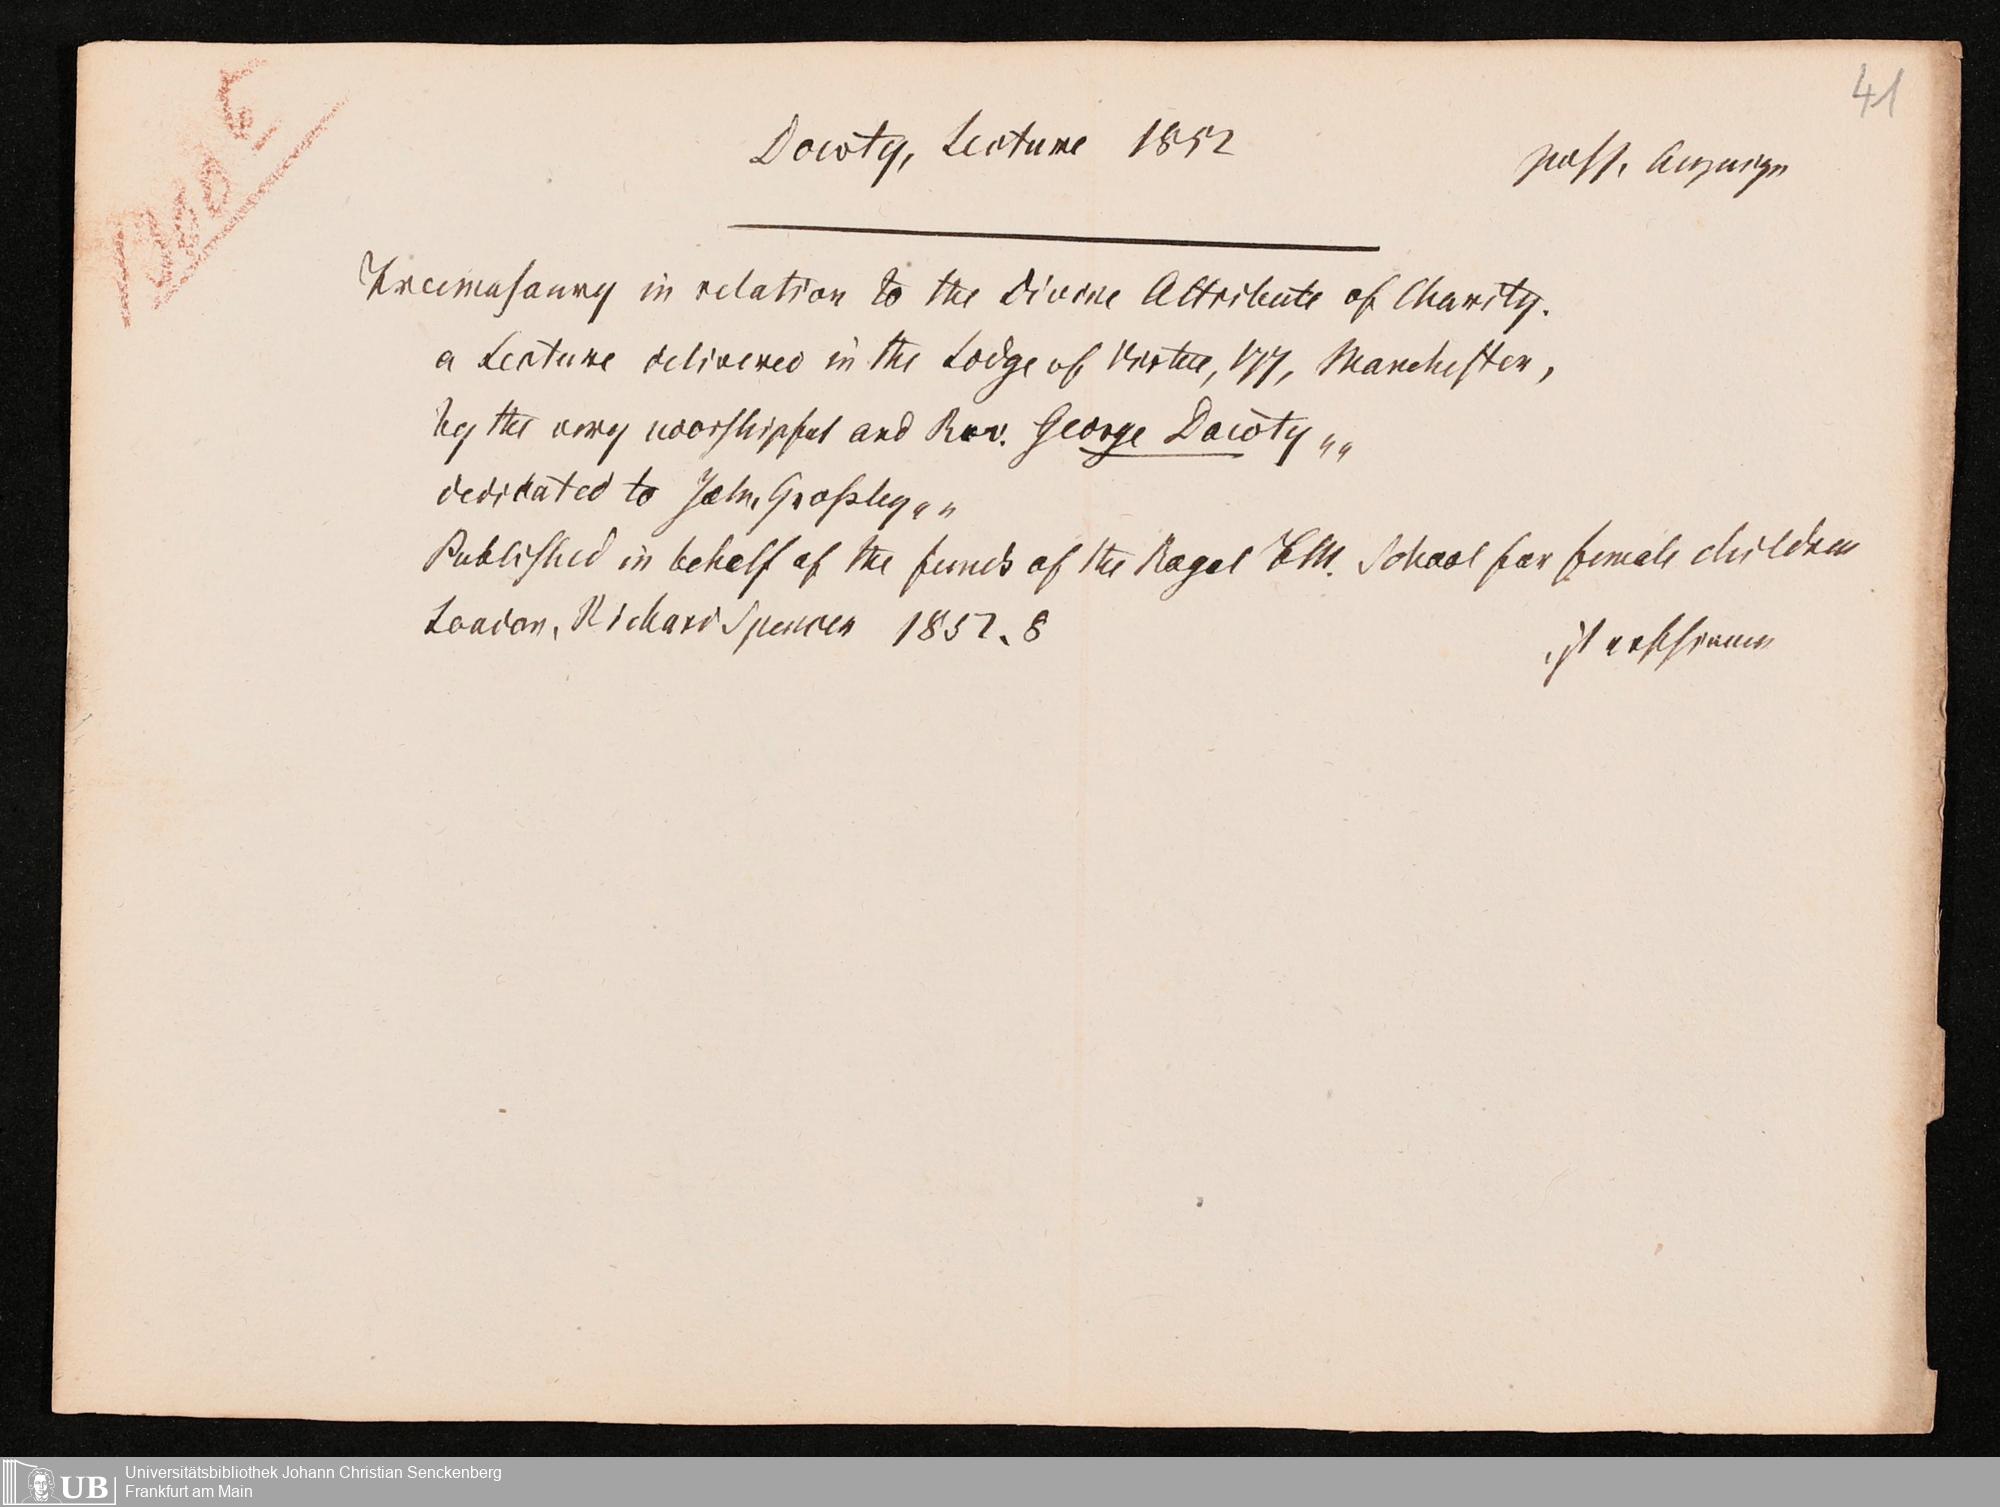 41
Dowty, Lecture 1852
Freemasonry in relation to the Divine Attribute of Charity.
a Lecture delivered in the Lodge of Virtue, 177, Manchester,
by the very worshipful and Rev. George Dowty „„
dedicated to John, Crossley „„
Published in behalf of the funds of the Royal F.M. School for female children
London, Richard Spencer 1852. 8
ist erschienen
Universitätsbibliothek Johann Christian Senckenberg
UB
Frankfurt am Main